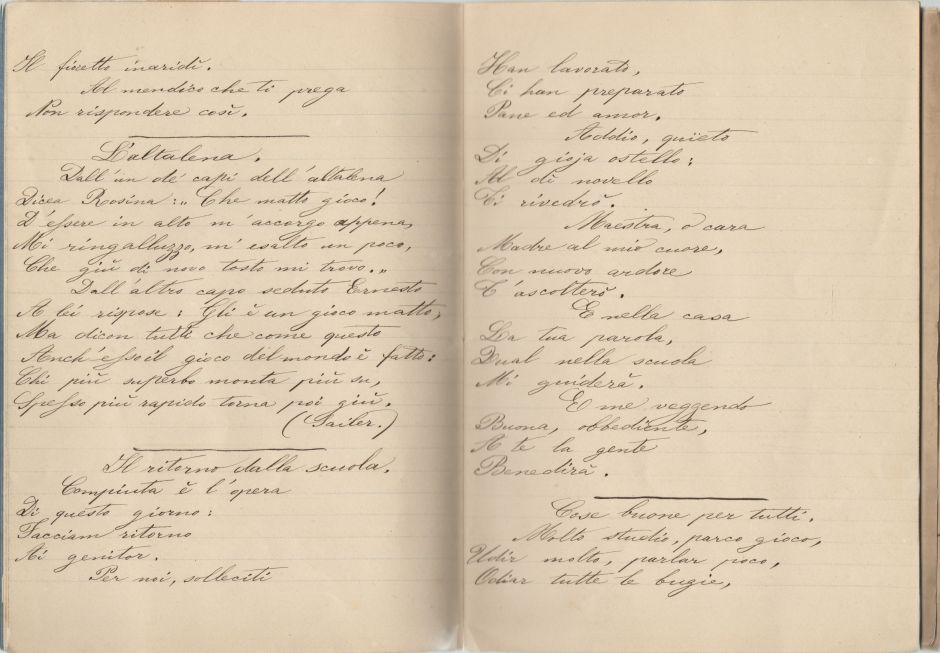 Il fioretto inaridì.
Al mendico che ti prega
Non rispondere così.
L'altalena.
Dall'un de' capi dell'altalena
Dicea Rosina: „ Che matto gioco!
D'essere in alto m'accorgo appena,
Mi ringalluzzo, m'esalto un poco,
Che giù di novo tosto mi trovo. „
Dall'altro capo seduto Ernesto
A lei rispose: Gli è un gioco matto,
Ma dicon tutti che come questo
Anch'esso il gioco del mondo è fatto:
Chi più superbo monta più su,
Spesso più rapido torna poi giù.
(Sailer.)
Il ritorno dalla scuola.
Compiuta è l'opera
Di questo giorno:
Facciam ritorno
Ai genitor.
Per noi, solleciti
Han lavorato,
Ci han preparato
Pane ed amor.
Addio, quïeto
Di gioja ostello:
Al dì novello
Ti rivedrò.
Maestra, o cara
Madre al mio cuore,
Con nuovo ardore
T'ascolterò.
E nella casa
La tua parola,
Qual nella scuola
Mi guiderà.
E me veggendo
Buona, obbediente,
A te la gente
Benedirà.
Cose buone per tutti.
Molto studio, parco gioco,
Udir molto, parlar poco,
Odiar tutte le bugie,